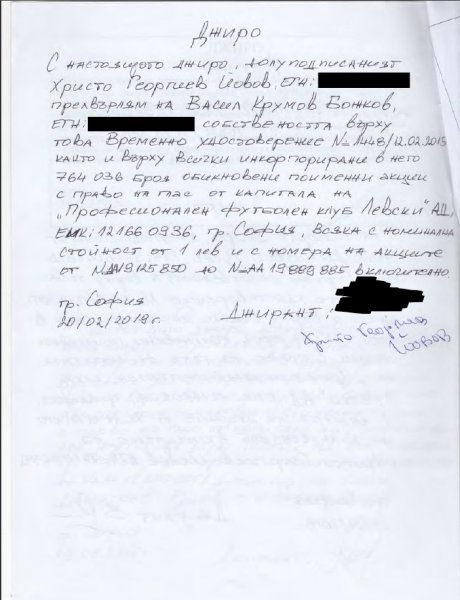 Джиро
С настоящото джиро, долуподписаният
Христо Георгиев Йовов, ЕГН:
прехвърлям на Васил Крумов Божков,
ЕГН: собствеността върху
това Временно удостоверение № 1448/12.02.2015
както и върху всички инкорпорирани в него
764 036 броя обикновени поименни акции
с право на глас от капитала на
„Професионален футболен клуб Левски" АД,
ЕИК: 121660936, гр. София, всяка с номинална
стойност от 1 лев и с номера на акциите
от 19125850 до № АА 19889885 включително
гр. София
20/02/2019г. Джирант:
Христо Георгиев
Йовов